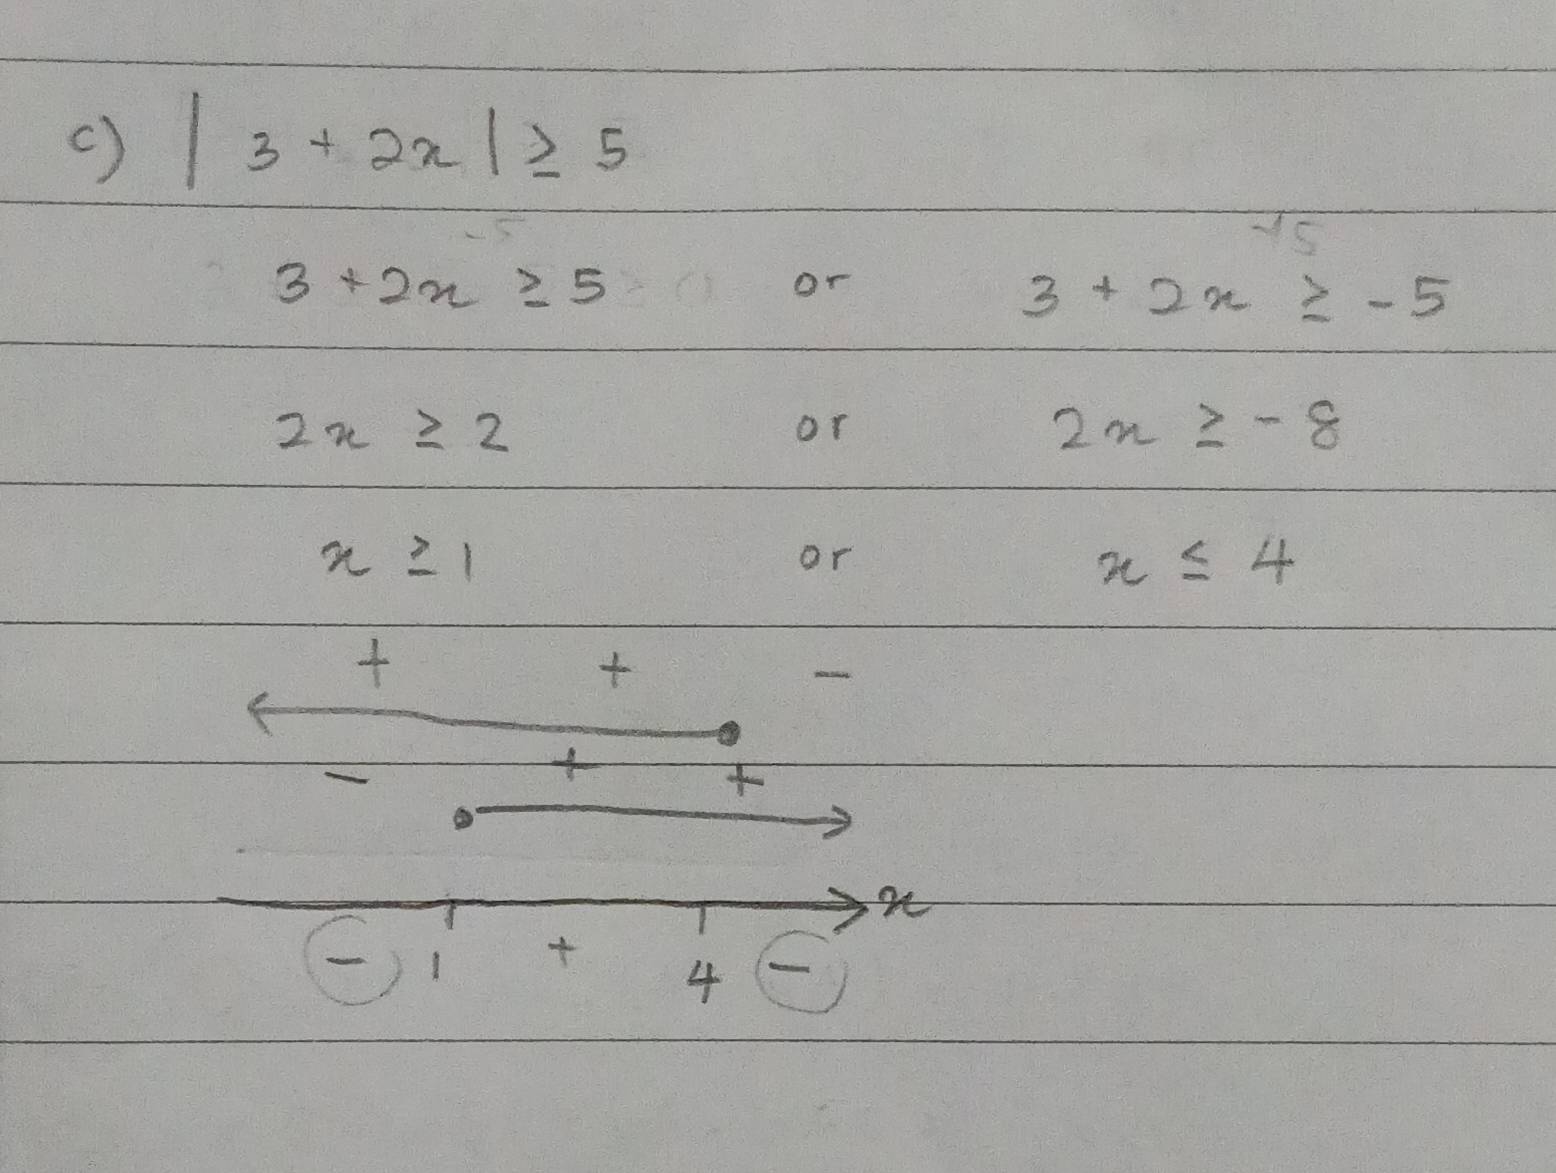 c) | 3 + 2x | ≥ 5
3 + 2x ≥ 5 or 3 + 2x ≥ -5
2x ≥ 2 or 2x ≥ -8
x ≥ 1 or x ≤ 4
+ + -
- + +
x
- 1 + 4 -